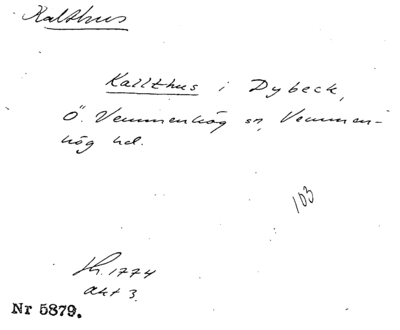 Kalthus
Kallthus i Dybeck,
Ö. Vemmenhög sn, Vemmen-
hög hd.
103
Lh. 1774
akt 3.
Nr 5879.